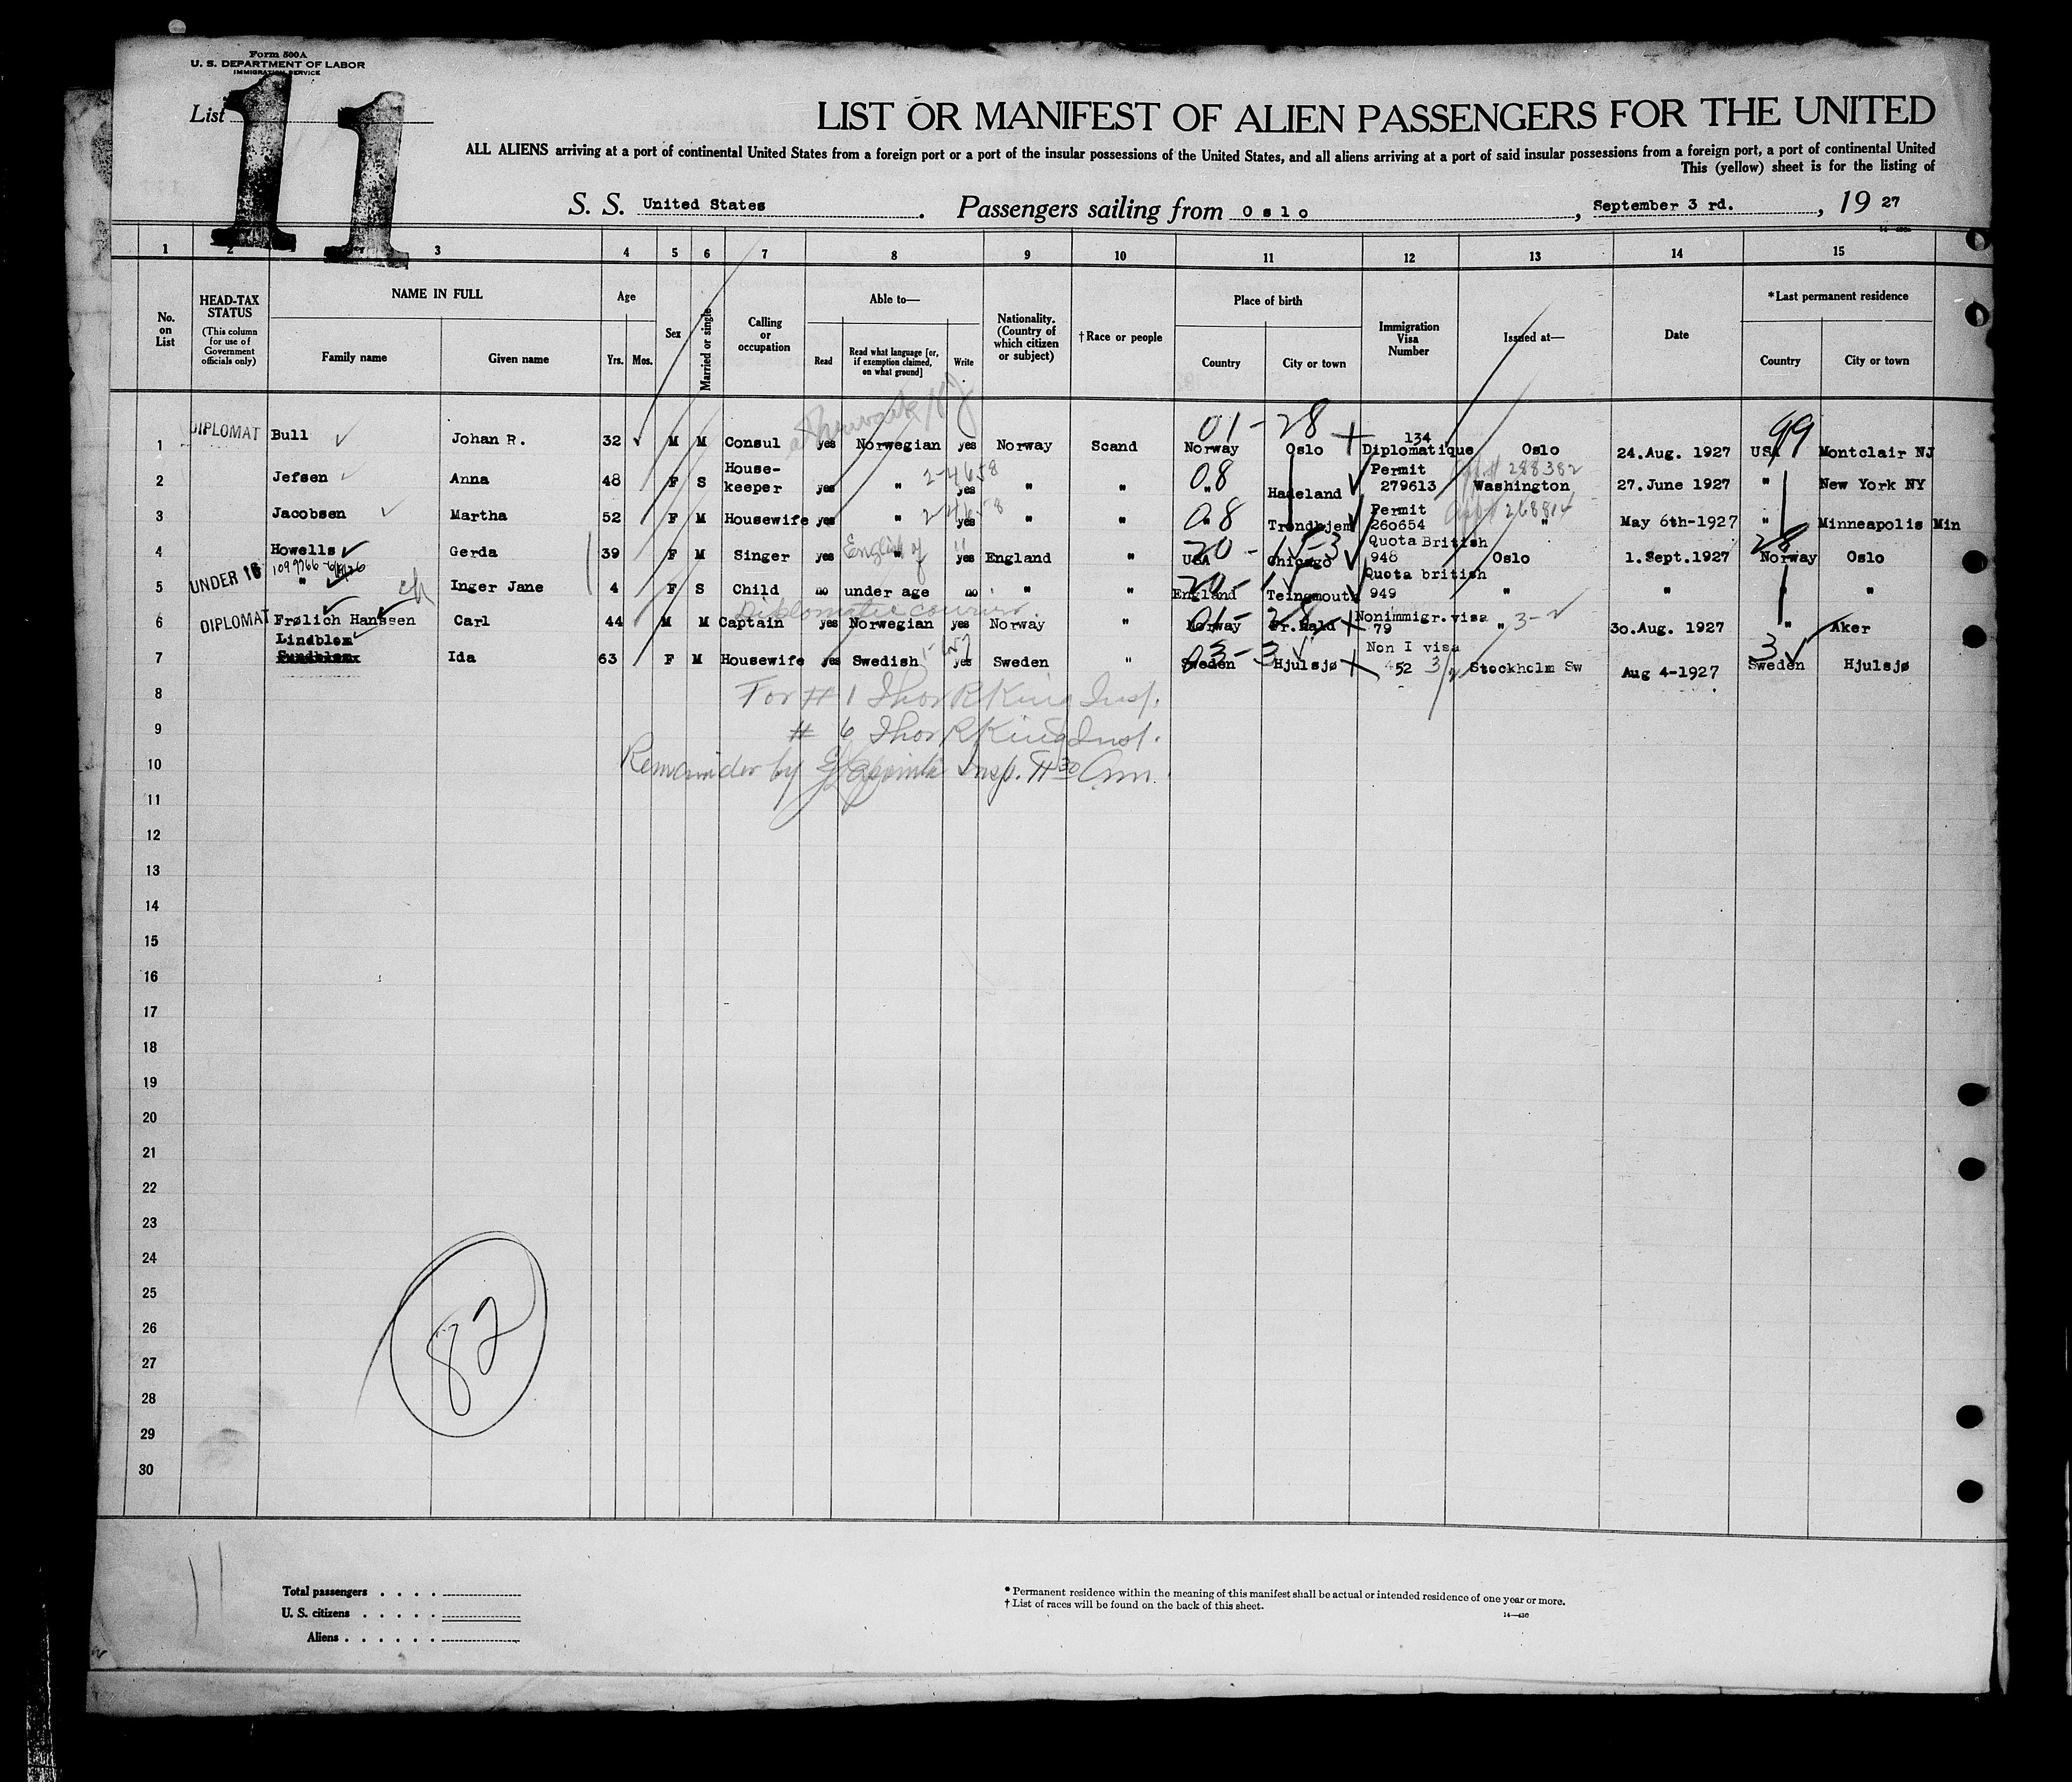 Form 500A
U. S. DEPARTMENT OF LABOR
IMMIGRATION SERVICE
List 11
LIST OR MANIFEST OF ALIEN PASSENGERS FOR THE UNITED
ALL ALIENS arriving at a port of continental United States from a foreign port or a port of the insular possessions of the United States, and all aliens arriving at a port of said insular possessions from a foreign port, a port of continental United
This (yellow) sheet is for the listing of
S. S. United States. Passengers sailing from Oslo, September 3 rd., 19 27
1 2 3 4 5 6 7 8 9 10 11 12 13 14 15
No. on List
HEAD-TAX STATUS (This column for use of Government officials only)
NAME IN FULL
Family name Given name
Age
Yrs. Mos.
Sex
Married or single
Calling or occupation
Able to—
Read
Read what language [or, if exemption claimed, on what ground]
Write
Nationality. (Country of which citizen or subject)
†Race or people
Place of birth
Country City or town
Immigration Visa Number
Issued at—
Date
*Last permanent residence
Country City or town
1 DIPLOMAT Bull Johan R. 32 M M Consul yes Norwegian yes Norway Scand Norway Oslo 134 Diplomatique Oslo 24.Aug. 1927 USA Montclair NJ
01-28 99
2 Jefsen Anna 48 F S House-keeper yes " yes " " " Hadeland Permit 279613 Washington 27.June 1927 " New York NY
2-4658 08 288382
3 Jacobsen Martha 52 F M Housewife yes " yes " " " Trondhjem Permit 260654 " May 6th-1927 " Minneapolis Min
08 268814
4 Howells Gerda 39 F M Singer yes " yes England " USA Chicago Quota British 948 Oslo 1.Sept.1927 Norway Oslo
English 20-15-3 28
5 UNDER 16 " Inger Jane 4 F S Child no under age no " " England Teingmouth Quota british 949 " " " "
Diplomatic courier
6 DIPLOMAT Frølich Hanssen Carl 44 M M Captain yes Norwegian yes Norway " Norway Fr.Hald Nonimmigr.visa 79 " 30.Aug. 1927 " Aker
01-28 3-2
7 Lindblom Ida 63 F M Housewife yes Swedish yes Sweden " Sweden Hjulsjø Non I visa 452 Stockholm Sw Aug 4-1927 Sweden Hjulsjø
03-3 3/2 3
8 For # 1 Thor R King Insp.
9 # 6 Thor R King Insp.
10 Remainder by Insp. 11 30 am.
11
12
13
14
15
16
17
18
19
20
21
22
23
24
25
26
27
28
29
30
82
11
Total passengers . . . .
U. S. citizens . . . . .
Aliens . . . . . .
* Permanent residence within the meaning of this manifest shall be actual or intended residence of one year or more.
† List of races will be found on the back of this sheet.
14—430